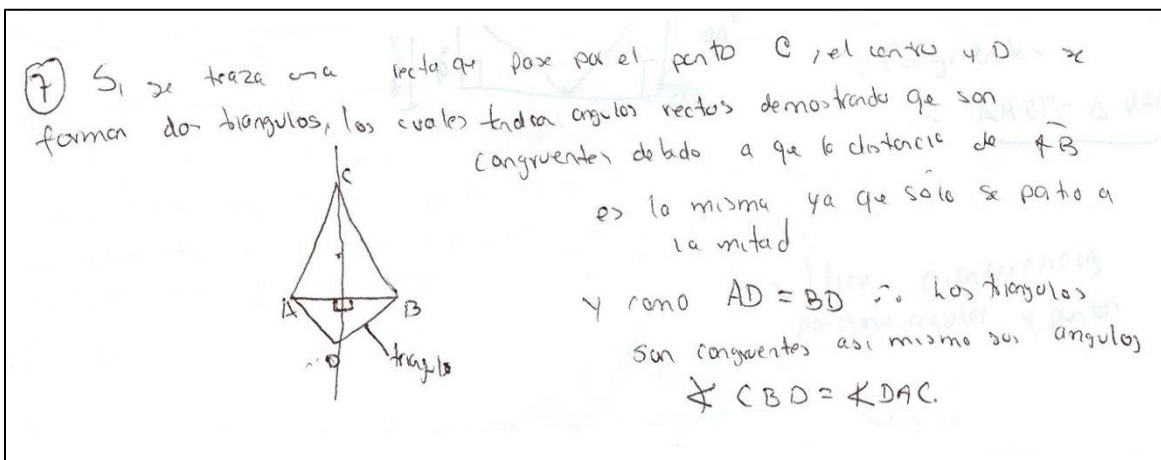 7 Si se traza una recta qe pase por el punto C, el centro y D se
forman dos triangulos, los cuales tndran angulos rectos demostrando qe son
congruentes debido a que la distancia de AB
es la misma ya qe sólo se partio a
la mitad
Y como AD = BD ∴ Los triangulos
son congruentes asi mismo sus angulos
∡ CBD = ∡DAC.
C
A
B
D
triangulo